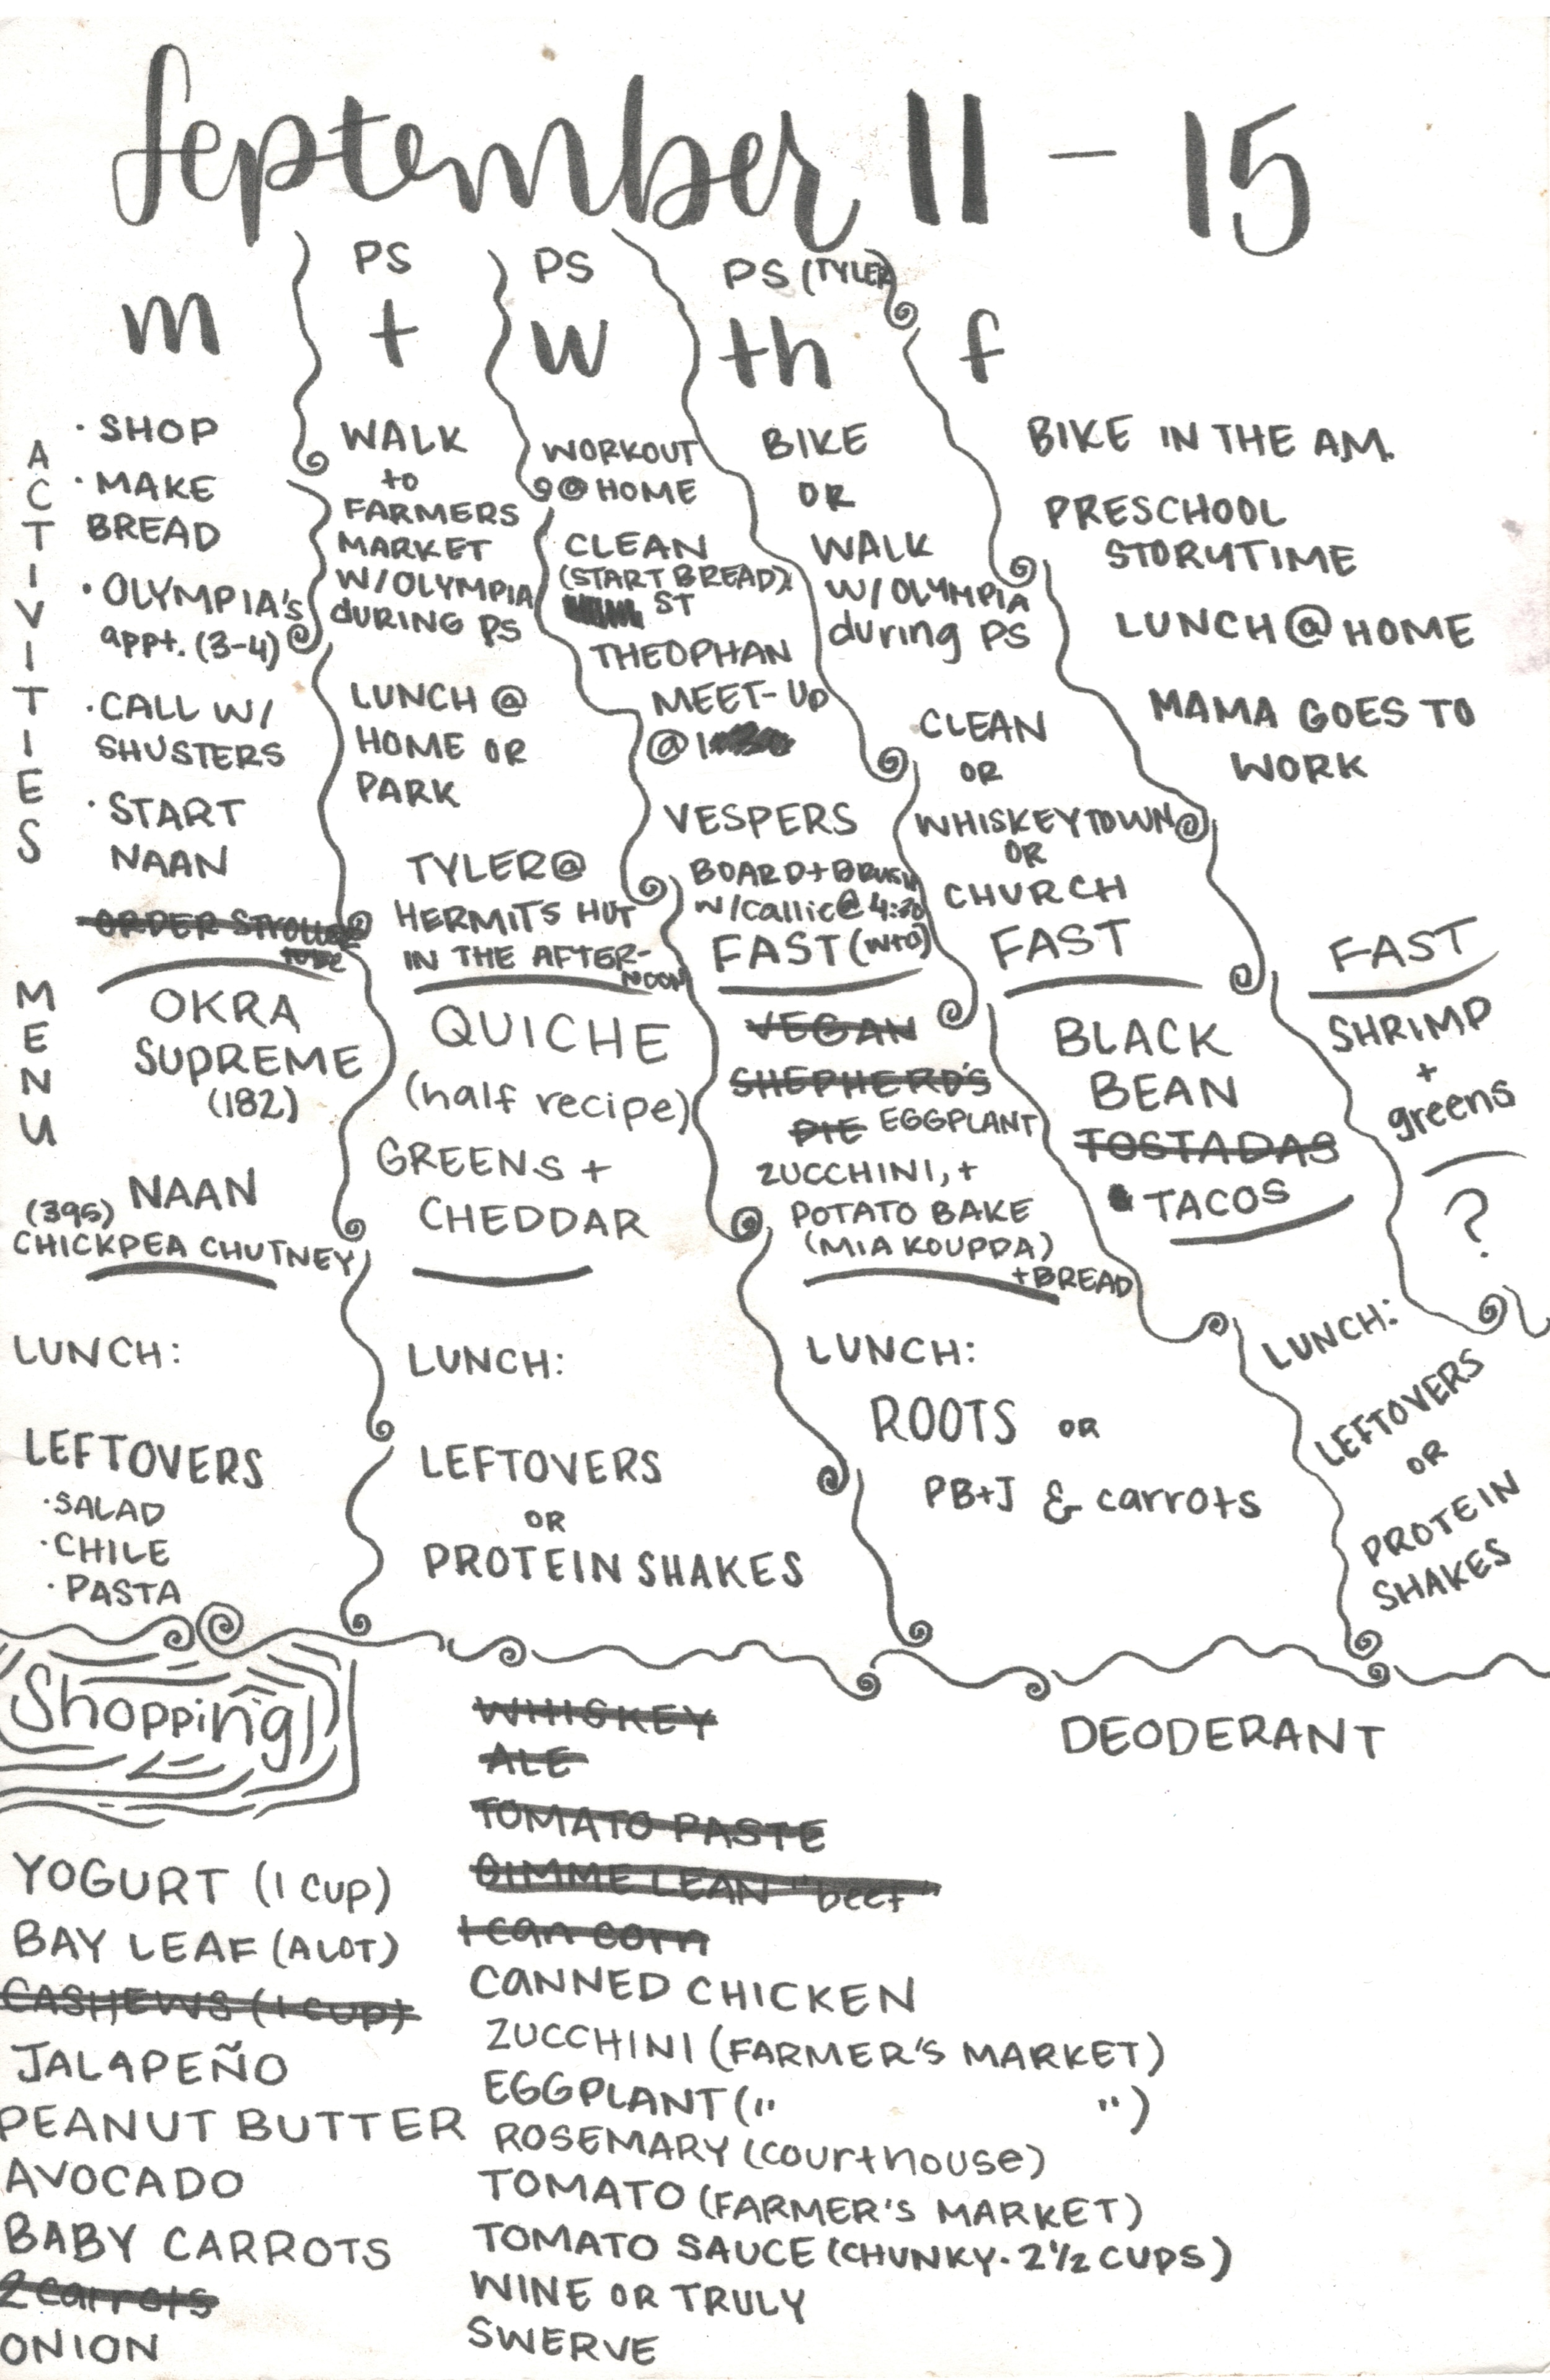 September 11 - 15
m
ACTIVITIES
· SHOP
· MAKE
BREAD
· OLYMPIA'S
appt. (3-4)
· CALL W/
SHUSTERS
· START
NAAN
ORDER STROLLER
tube
PS
t
WALK
to
FARMERS
MARKET
W/OLYMPIA
dURING PS
LUNCH @
HOME OR
PARK
TYLER@
HERMIT'S HUT
IN THE AFTER-
NOON
PS
W
WORKOUT
@ HOME
CLEAN
(START BREAD)
ST
THEOPHAN
MEET-UP
@ 1
VESPERS
BOARD+BRUSH
W/Callie@ 4:30
FAST (w+o)
PS (TYLER)
th
BIKE
OR
WALK
W/OLYMPIA
during PS
CLEAN
OR
WHISKEYTOWN
OR
CHURCH
FAST
f
BIKE IN THE AM.
PRESCHOOL
STORYTIME
LUNCH @ HOME
MAMA GOES TO
WORK
FAST
MENU
OKRA
SUPREME
(182)
NAAN
(395)
CHICKPEA CHUTNEY
QUICHE
(half recipe)
GREENS +
CHEDDAR
VEGAN
SHEPHERD'S
PIE EGGPLANT
ZUCCHINI, +
POTATO BAKE
(MIA KOUPPA)
+BREAD
BLACK
BEAN
TOSTADAS
TACOS
SHRIMP
+
greens
?
LUNCH:
LEFTOVERS
· SALAD
· CHILE
· PASTA
LUNCH:
LEFTOVERS
OR
PROTEIN SHAKES
LUNCH:
ROOTS OR
PB+J & carrots
LUNCH:
LEFTOVERS
OR
PROTEIN
SHAKES
Shopping
YOGURT (1 CUP)
BAY LEAF (A LOT)
CASHEWS (1 CUP)
JALAPEÑO
PEANUT BUTTER
AVOCADO
BABY CARROTS
2 carrots
ONION
WHISKEY
ALE
TOMATO PASTE
GIMME LEAN "beef"
1 can corn
CANNED CHICKEN
ZUCCHINI (FARMER'S MARKET)
EGGPLANT (" ")
ROSEMARY (courthouse)
TOMATO (FARMER'S MARKET)
TOMATO SAUCE (CHUNKY - 2 1/2 CUPS)
WINE OR TRULY
SWERVE
DEODERANT